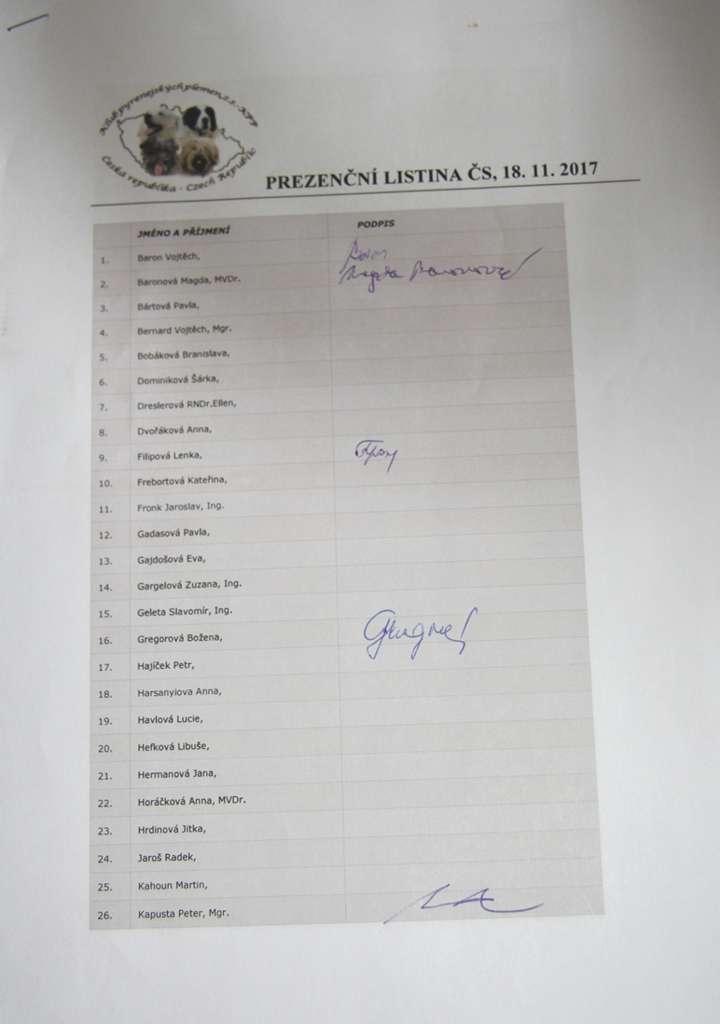 Klub pyrenejských plemen, z.s. - KPP
Česká republika - Czech Republic
PREZENČNÍ LISTINA ČS, 18. 11. 2017
JMÉNO A PŘÍJMENÍ PODPIS
1. Baron Vojtěch,
2. Baronová Magda, MVDr. Magda Baronová
3. Bártová Pavla,
4. Bernard Vojtěch, Mgr.
5. Bobáková Branislava,
6. Dominiková Šárka,
7. Dreslerová RNDr.Ellen,
8. Dvořáková Anna,
9. Filipová Lenka,
10. Frebortová Kateřina,
11. Fronk Jaroslav, Ing.
12. Gadasová Pavla,
13. Gajdošová Eva,
14. Gargelová Zuzana, Ing.
15. Geleta Slavomír, Ing.
16. Gregorová Božena,
17. Hajíček Petr,
18. Harsanyiova Anna,
19. Havlová Lucie,
20. Hefková Libuše,
21. Hermanová Jana,
22. Horáčková Anna, MVDr.
23. Hrdinová Jitka,
24. Jaroš Radek,
25. Kahoun Martin,
26. Kapusta Peter, Mgr.